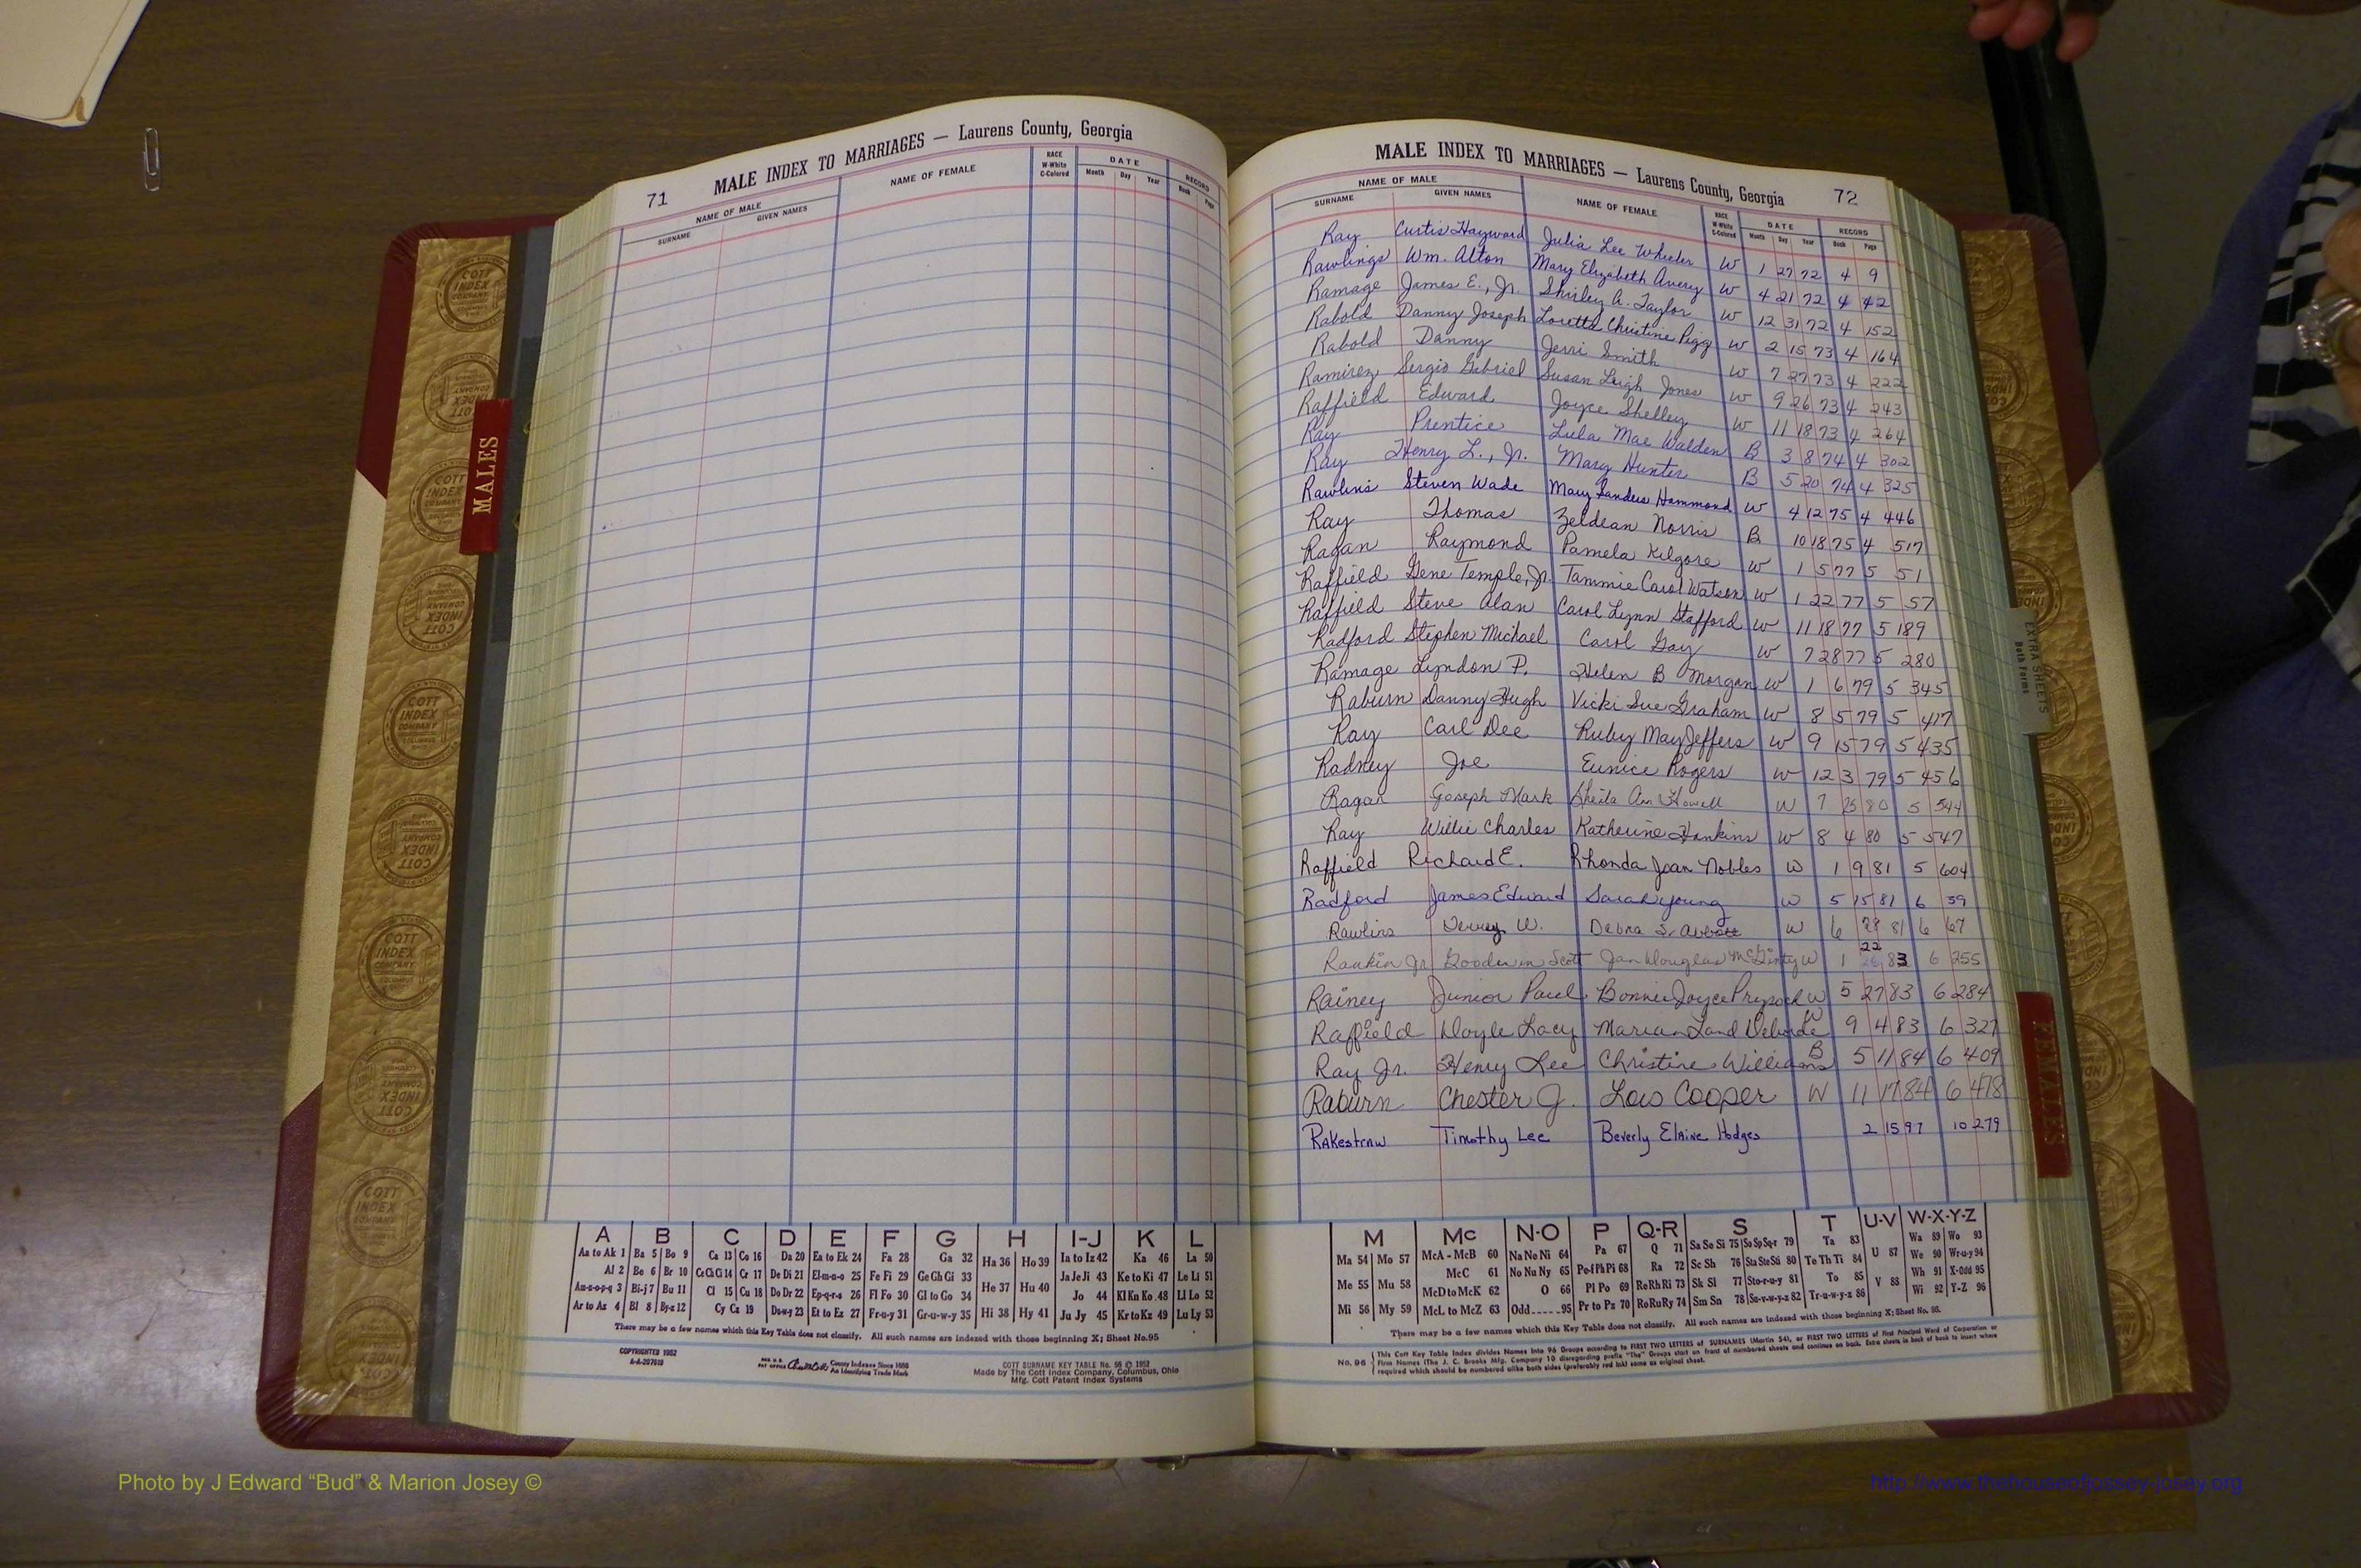 71 MALE INDEX TO MARRIAGES — Laurens County, Georgia
NAME OF MALE NAME OF FEMALE RACE W-White C-Colored DATE RECORD
SURNAME GIVEN NAMES Month Day Year Book Page
MALES
A B C D E F G H I-J K L
Aa to Ak 1 Ba 5 Bo 9 Ca 13 Co 16 Da 20 Ea to Ek 24 Fa 28 Ga 32 Ha 36 Ho 39 Ia to Iz 42 Ka 46 La 50
Al 2 Be 6 Br 10 Ce Ch Ci 14 Cr 17 De Di 21 El-m-n-o 25 Fe Fi 29 Ge Gh Gi 33 He 37 Hu 40 Ja Je Ji 43 Ke to Ki 47 Le Li 51
Am-n-o-p-q 3 Bi-j 7 Bu 11 Cl 15 Cu 18 Do Dr 22 Ep-q-r-s 26 Fl Fo 30 Gl to Go 34 Hi 38 Hy 41 Jo 44 Kl Kn Ko 48 Ll Lo 52
Ar to Az 4 Bl 8 By-z 12 Cy Cz 19 Du-w-y 23 Et to Ez 27 Fr-u-y 31 Gr-u-w-y 35 Ju Jy 45 Kr to Kz 49 Lu Ly 53
There may be a few names which this Key Table does not classify. All such names are indexed with those beginning X; Sheet No. 95
COPYRIGHTED 1952
A-A-207619
County Indexes Since 1888
An Identifying Trade Mark
COTT SURNAME KEY TABLE No. 96 © 1952
Made by The Cott Index Company, Columbus, Ohio
Mfg. Cott Patent Index Systems
MALE INDEX TO MARRIAGES — Laurens County, Georgia 72
NAME OF MALE NAME OF FEMALE RACE W-White C-Colored DATE RECORD
SURNAME GIVEN NAMES Month Day Year Book Page
Ray Curtis Hayward Julia Lee Wheeler W 1 27 72 4 9
Rawlings Wm. Alton Mary Elizabeth Avery W 4 21 72 4 42
Ramage James E., Jr. Shirley A. Taylor W 12 31 72 4 152
Rabold Danny Joseph Loretta Christine Pigg W 2 15 73 4 164
Rabold Danny Jerri Smith W 7 27 73 4 222
Ramirez Sergio Gabriel Susan Leigh Jones W 9 26 73 4 243
Raffield Edward Joyce Shelley W 11 18 73 4 264
Ray Prentice Lula Mae Walden B 3 8 74 4 302
Ray Henry L., Jr. Mary Hunter B 5 20 74 4 325
Rawlins Steven Wade Mary Sandra Hammond W 4 12 75 4 446
Ray Thomas Zeldean Norris B 10 18 75 4 517
Ragan Raymond Pamela Kilgore W 1 5 77 5 51
Raffield Gene Temple, Jr. Tammie Carol Watson W 1 22 77 5 57
Raffield Steve Alan Carol Lynn Stafford W 11 18 77 5 189
Radford Stephen Michael Carol Gay W 7 28 77 5 280
Ramage Lyndon P. Helen B Morgan W 1 6 79 5 345
Raburn Danny Hugh Vicki Sue Graham W 8 5 79 5 417
Ray Carl Dee Ruby May Jeffers W 9 15 79 5 435
Radney Joe Eunice Rogers W 12 3 79 5 456
Ragan Joseph Mark Sheila Ann Howell W 7 25 80 5 544
Ray Willie Charles Katherine Hankins W 8 4 80 5 547
Raffield Richard E. Rhonda Joan Nobles W 1 9 81 5 604
Radford James Edward Sarah Young W 5 15 81 6 39
Rawlins W. Debra S. Abbott W 6 28 81 6 67
Rankin Jr Gooderin Scott Jan Douglas McGinty W 1 22 83 6 255
Rainey Junior Paul Bonnie Joyce W 5 27 83 6 284
Raffield Doyle Lacy Marian Land W 9 4 83 6 327
Ray Jr. Henry Lee Christine Williams B 5 11 84 6 409
Raburn Chester J. Lois Cooper W 11 17 84 6 478
Rakestraw Timothy Lee Beverly Elaine Hodges 2 15 97 10 279
EXTRA SHEETS
Both Forms
FEMALES
M Mc N-O P Q-R S T U-V W-X-Y-Z
Ma 54 Mo 57 McA - McB 60 Na Ne Ni 64 Pa 67 Q 71 Sa Se Si 75 So Sp Sq-r 79 Ta 83 U 87 Wa 89 Wo 93
Me 55 Mu 58 McC 61 No Nu Ny 65 Pe-f Ph Pi 68 Ra 72 Sc Sh 76 Sta Ste Sti 80 Te Th Ti 84 We 90 Wr-u-y 94
McD to McK 62 O 66 Pl Po 69 Re Rh Ri 73 Sk Sl 77 Sto-r-u-y 81 To 85 V 88 Wh 91 X-Odd 95
Mi 56 My 59 McL to McZ 63 Odd 95 Pr to Pz 70 Ro Ru Ry 74 Sm Sn 78 Su-v-w-y-z 82 Tr-u-w-y-z 86 Wi 92 Y-Z 96
There may be a few names which this Key Table does not classify. All such names are indexed with those beginning X; Sheet No. 95.
No. 96 This Cott Key Table Index divides Names into 96 Groups according to FIRST TWO LETTERS of SURNAMES (Martin 54), or FIRST TWO LETTERS of First Principal Word of Corporation or
Firm Names (The J. C. Brooks Mfg. Company 10 disregarding prefix "The") Groups start on front of numbered sheets and continue on back. Extra sheets in back of book to insert where
required which should be numbered alike both sides (preferably red ink) same as original sheet.
Photo by J Edward “Bud” & Marion Josey ©
http://www.thehouseofjossey-josey.org